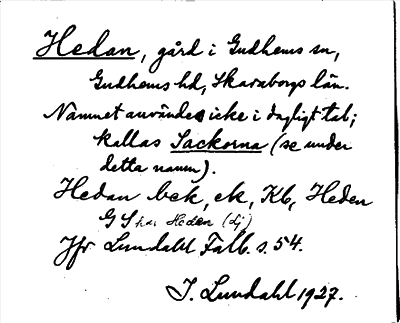 Hedan, gård i Gudhems sn,
Gudhems hd, Skaraborgs län.
Namnet användes icke i dagligt tal;
kallas Sackorna (se under
detta namn).
Hedan bek, ek, Kb, Heden
GS har Heden (dj)
Jfr Lundahl Falb. s. 54.
I. Lundahl 1927.